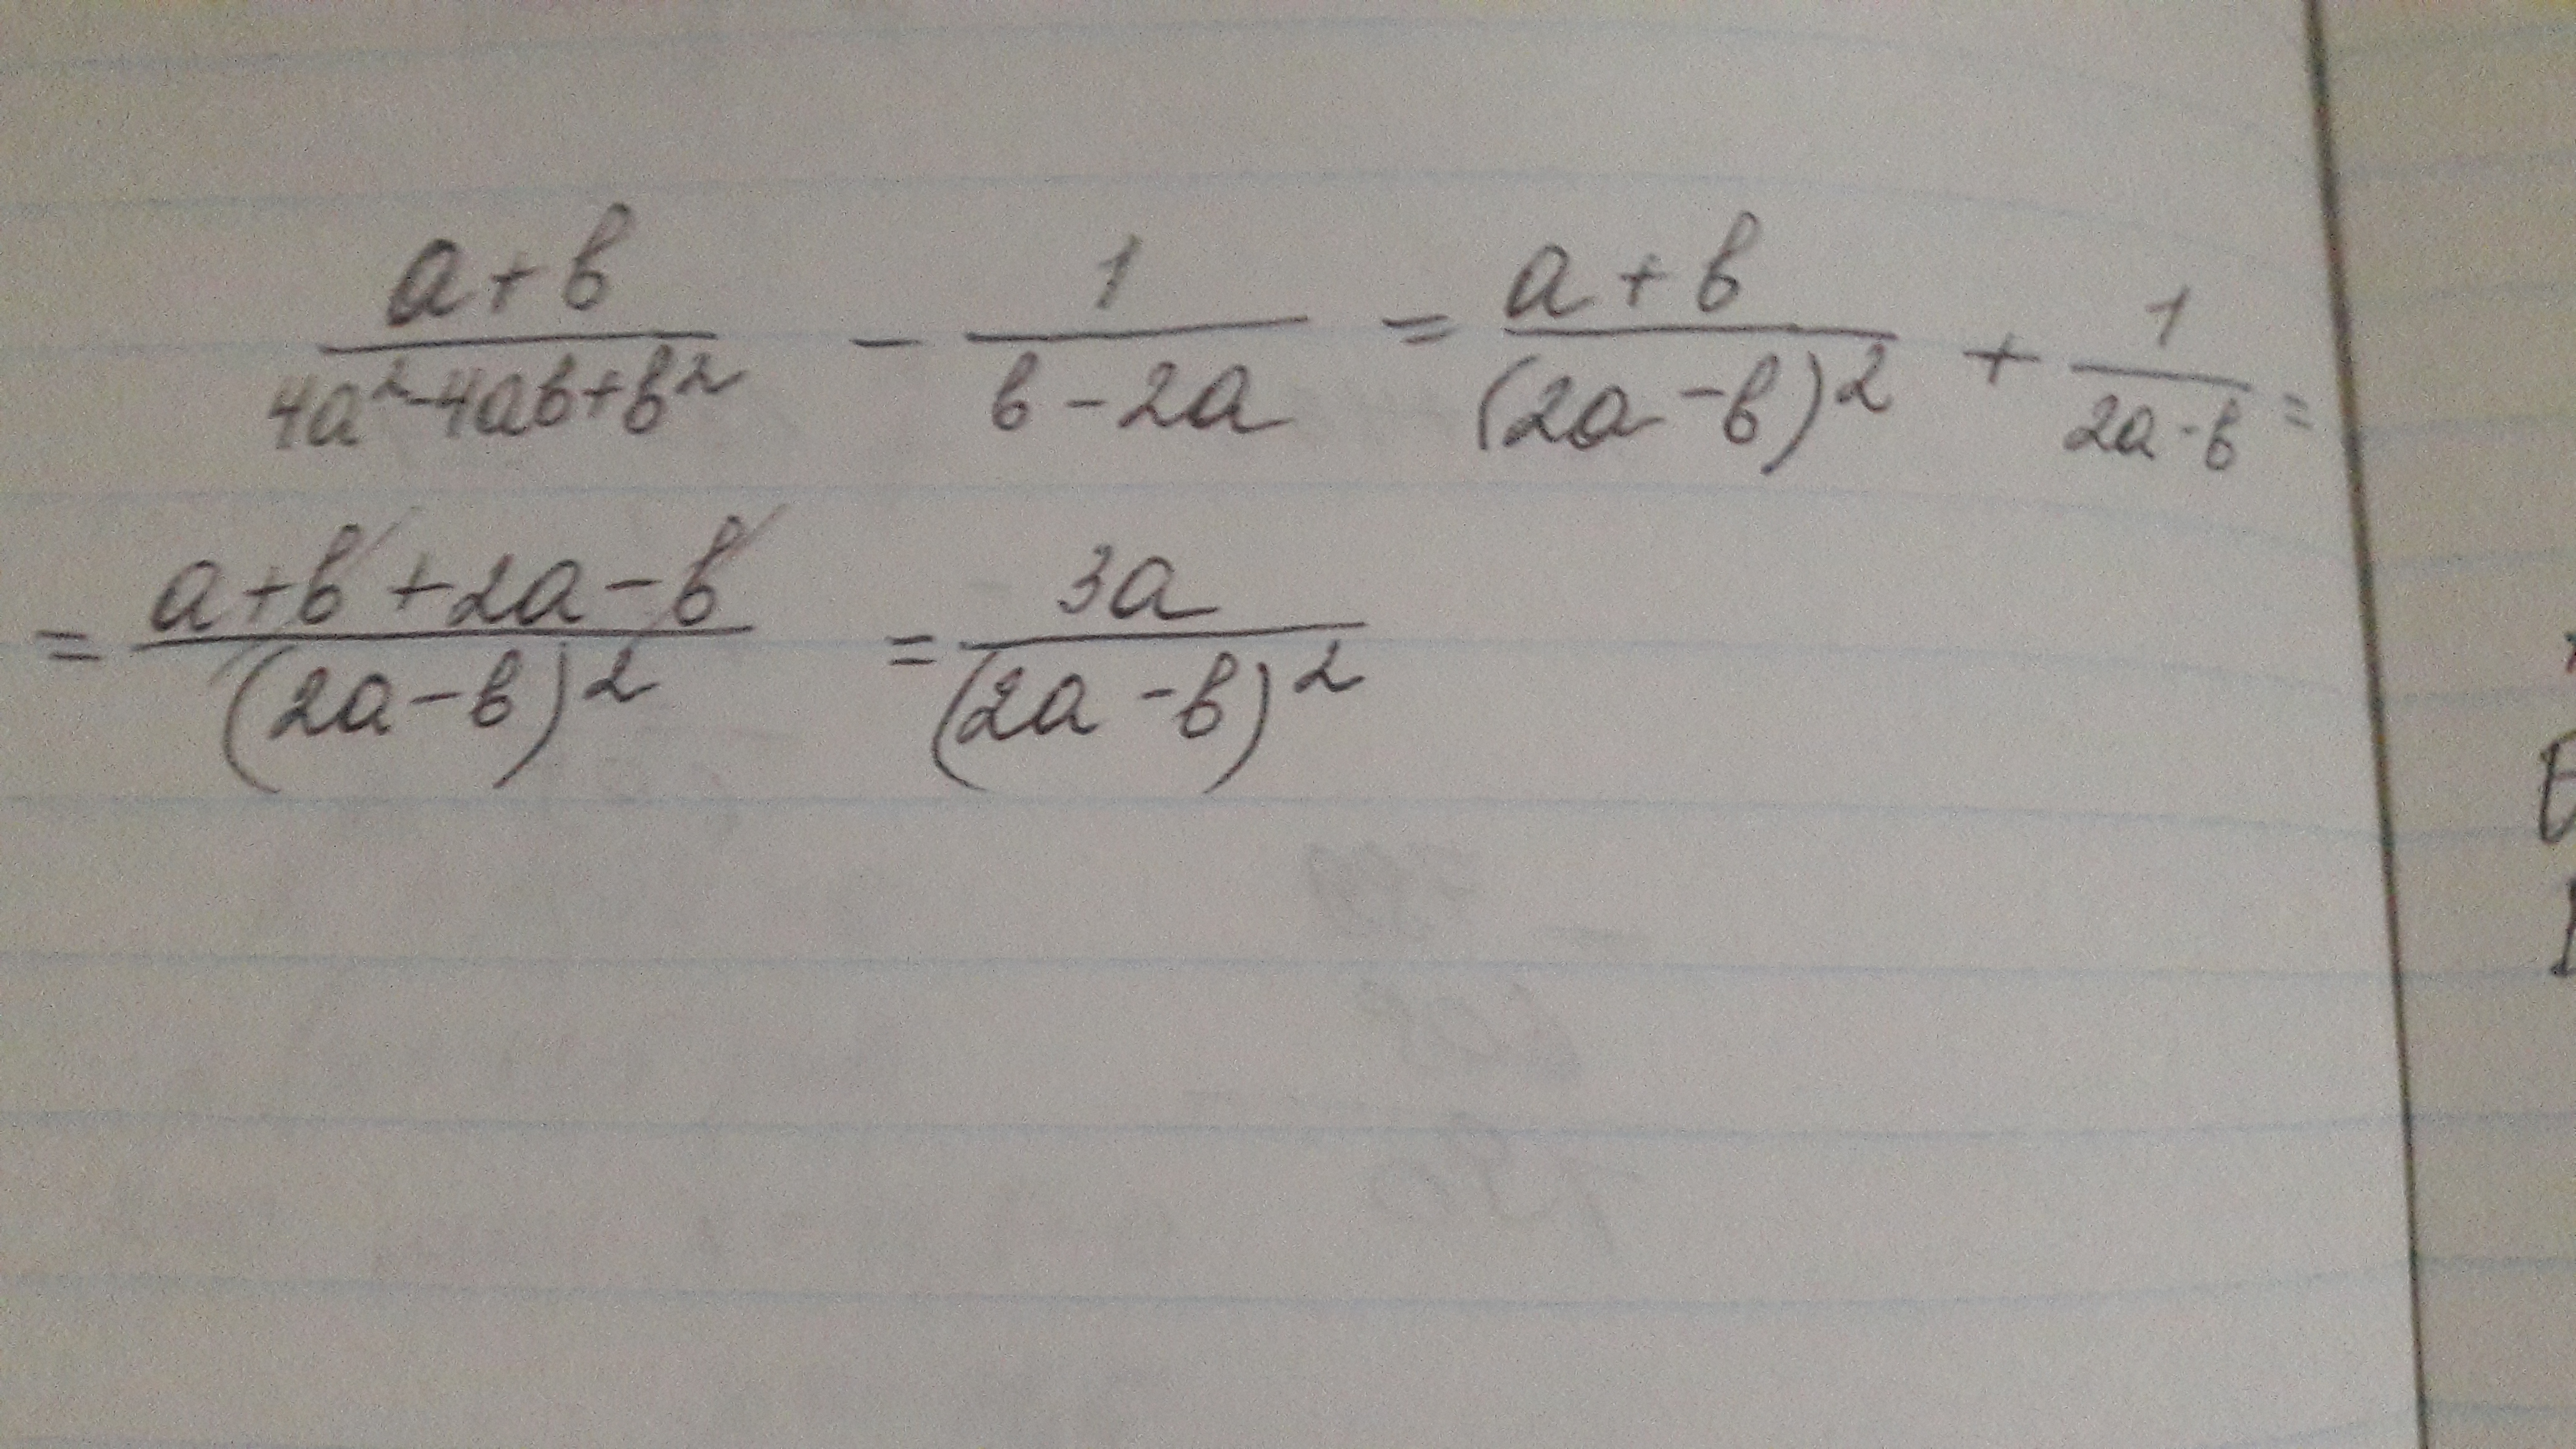 a+b/4a²-4ab+b² - 1/b-2a = a+b/(2a-b)² + 1/2a-b =
= a+b+2a-b/(2a-b)² = 3a/(2a-b)²